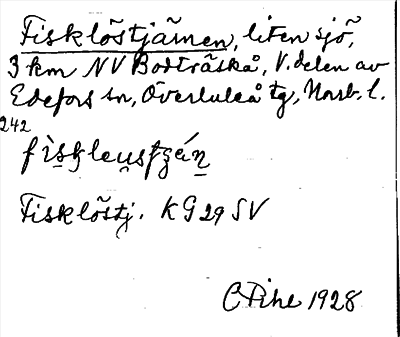 Fisklöstjärnen, liten sjö,
3 km NV Bodträskå, V. delen av
Edefors sn, Överluleå tg, Norb. l.
242
Fisklöstj. KG 29 SV
C Pihl 1928